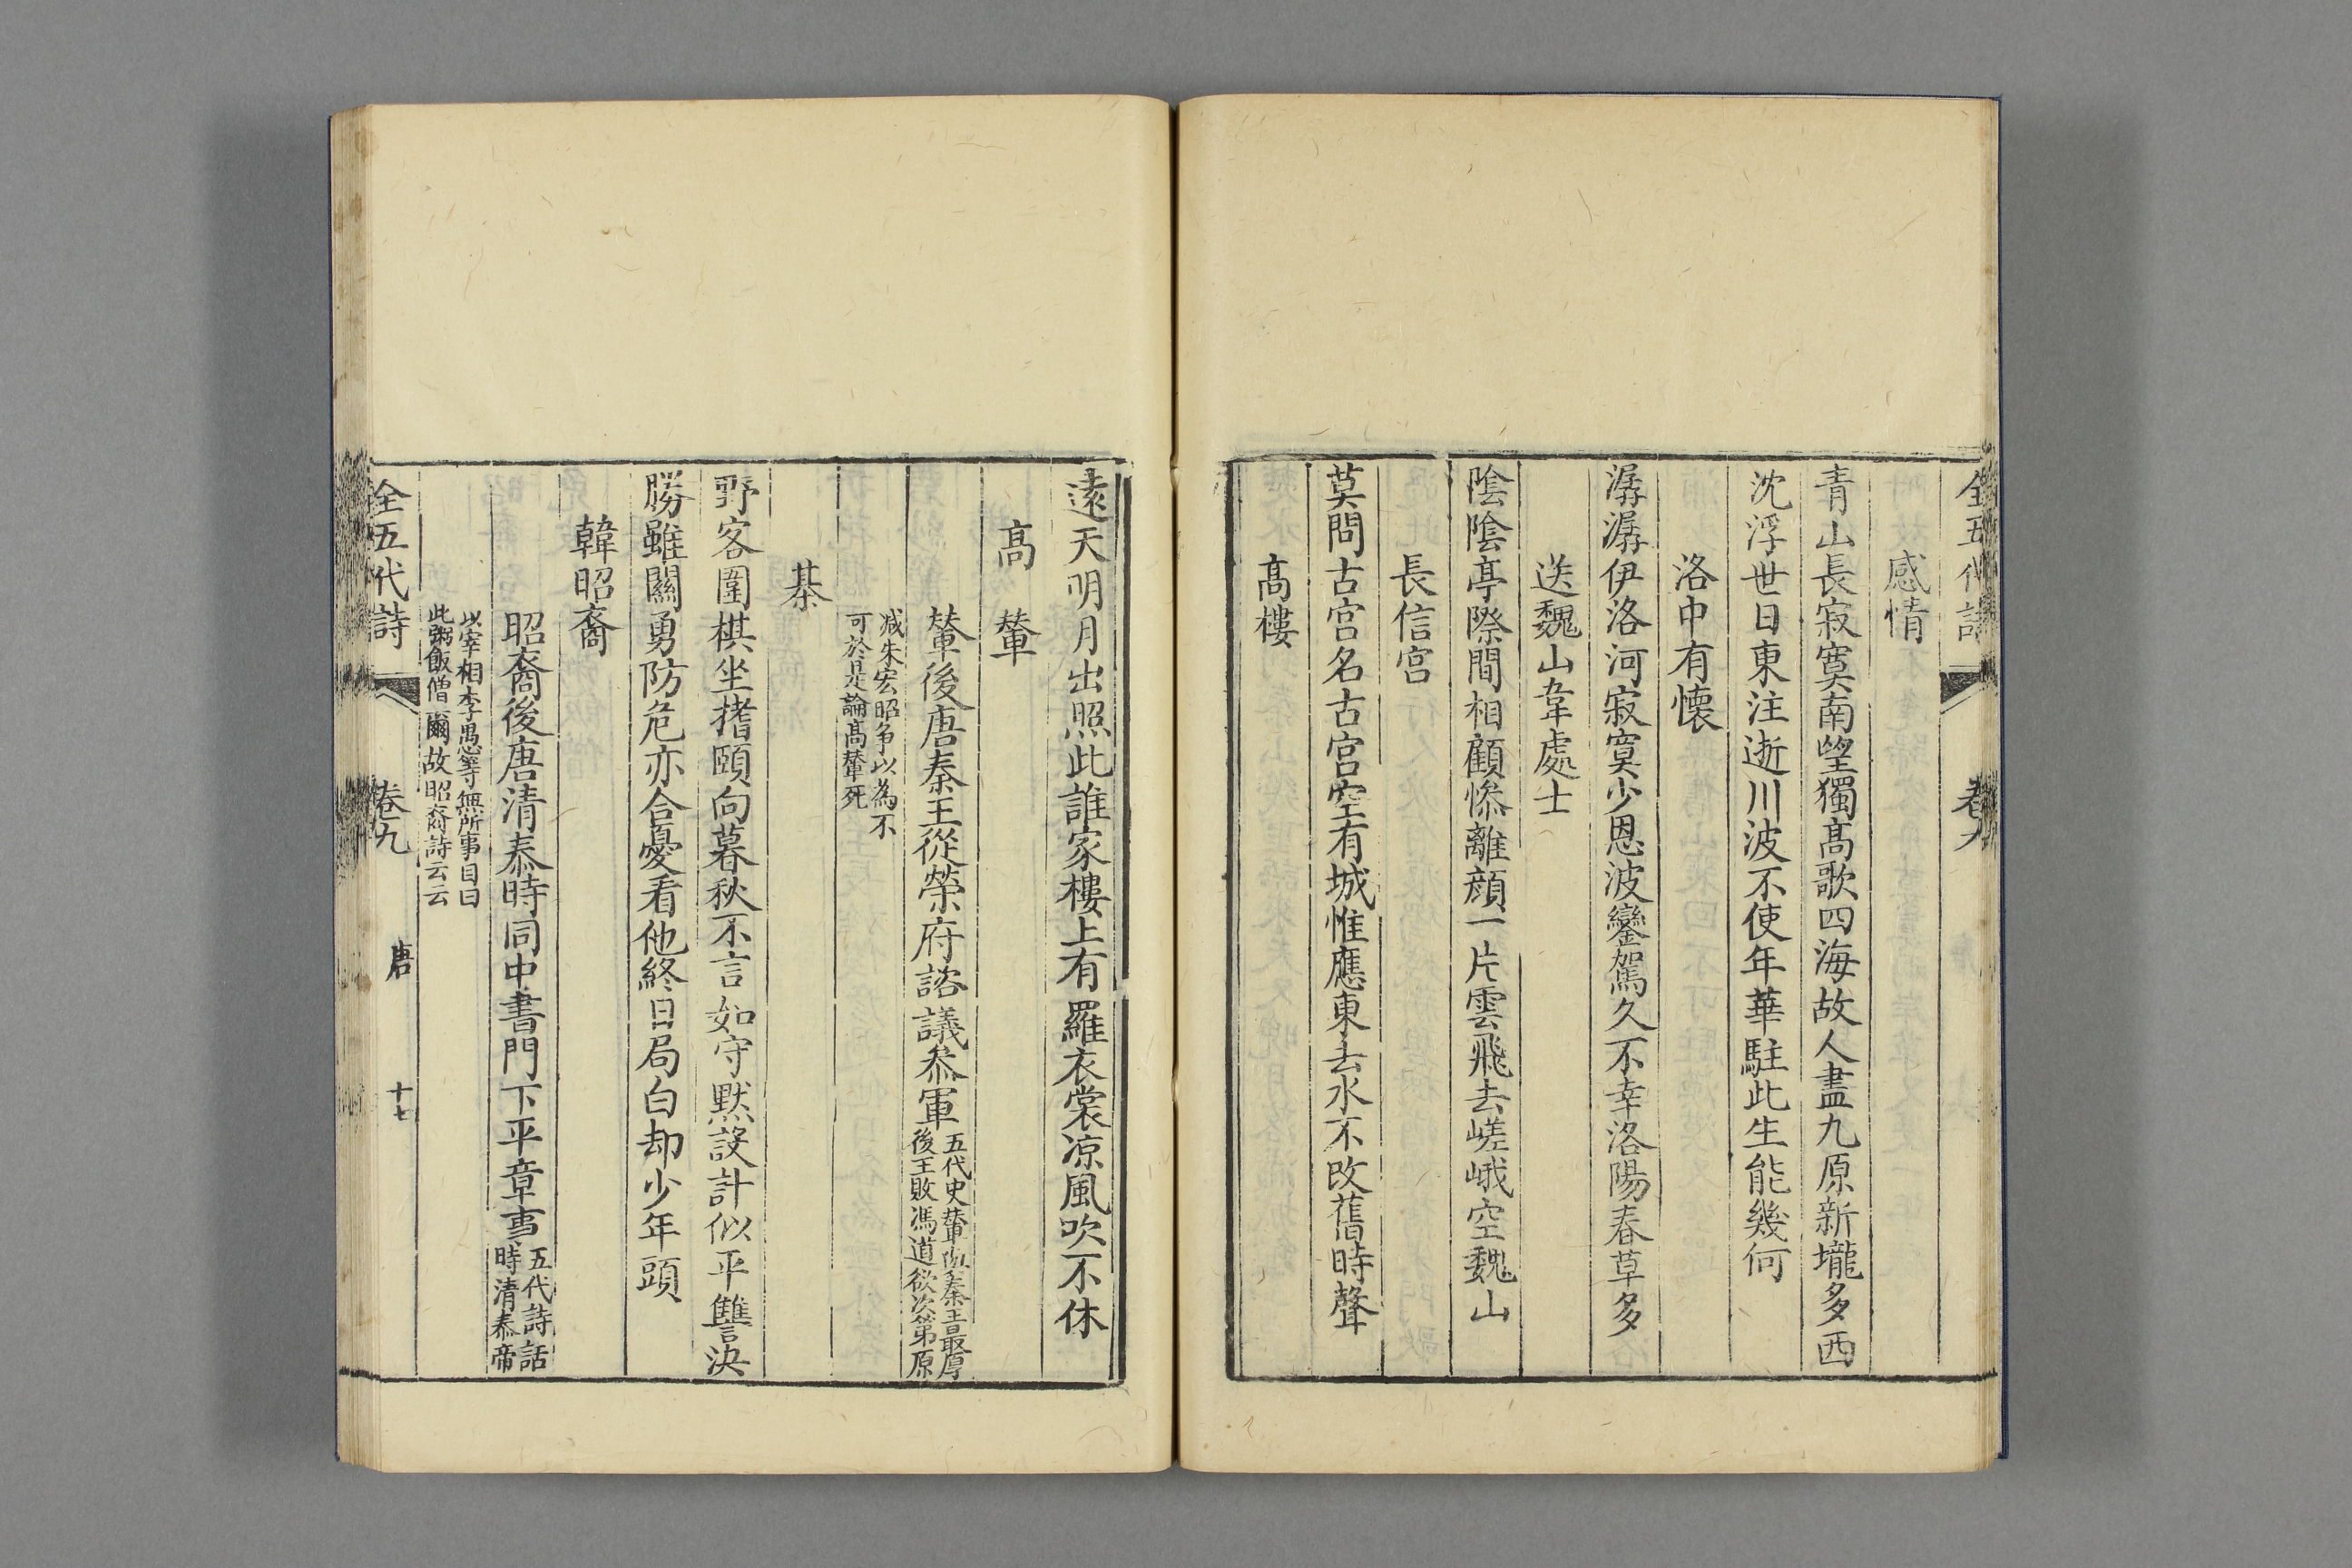 全五代詩 卷九
感情
青山長寂寞南望獨髙歌四海故人盡九原新壠多西
沈浮世日東注逝川波不使年華駐此生能幾何
洛中有懷
潺潺伊洛河寂寞少恩波鑾駕久不幸洛陽春草多
送魏山韋處士
陰陰亭際間相顧慘離顔一片雲飛去嵯峨空魏山
長信宫
莫問古宫名古宫空有城惟應東去水不改舊時聲
髙樓
遠天明月出照此誰家樓上有羅衣裳凉風吹不休
髙輦
輦後唐秦王從榮府諮議叅軍
五代史輦與秦王最厚
後王敗馮道欲次第原
減朱宏昭爭以為不
可於是論髙輦死
棊
野客圍棋坐搘頤向暮秋不言如守默設計似平讐決
勝雖關勇防危亦合憂看他終日局白却少年頭
韓昭裔
昭裔後唐清泰時同中書門下平章事
五代詩話
時清泰帝
以宰相李愚等無所事目曰
此粥飯僧爾故昭裔詩云云
全五代詩 卷九 唐 十七